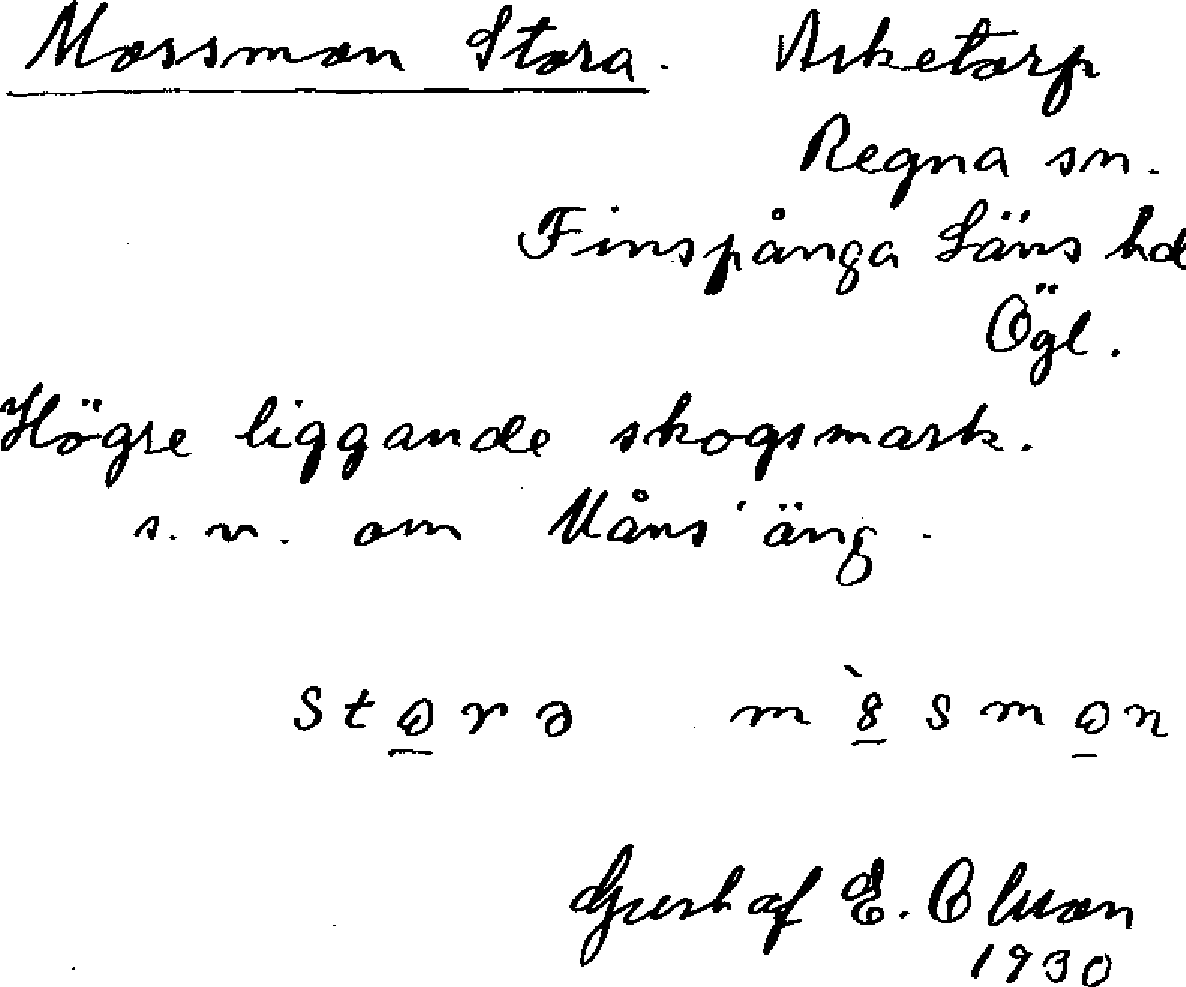 Mossmon Stora. Asketorp
Regna sn.
Finspånga Läns hd
Ögl.
Högre liggande skogsmark.
s. v. om Måns' äng.
Gustaf E. Olsson
1930